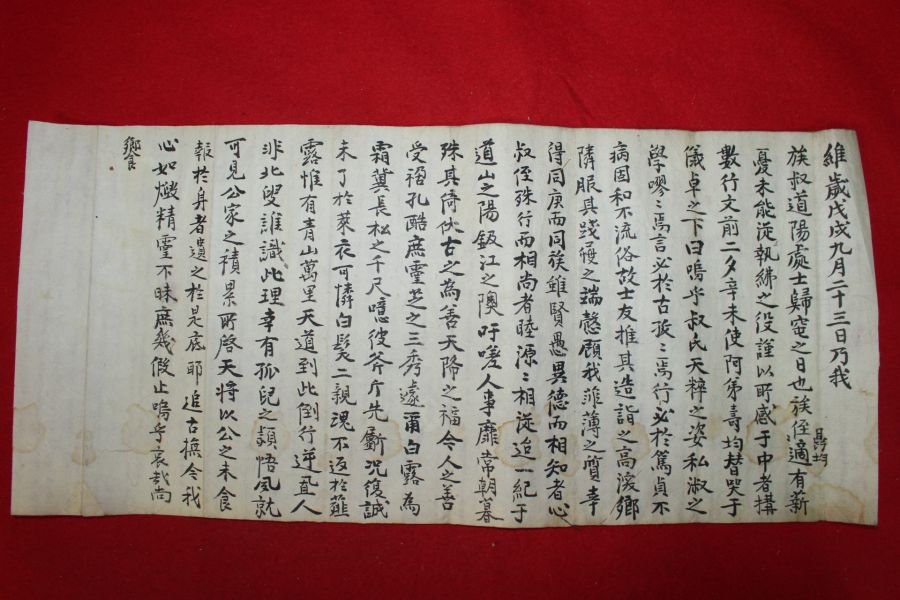 維歲戊戌九月二十三日乃我
族叔道陽處士歸窆之日也族侄適有薪
憂未能從執紼之役謹以所感于中者搆
數行文前二夕辛未使阿弟壽均替哭于
儀卓之下曰嗚乎叔氏天粹之姿私淑之
學嘐〻焉言必於古孜〻焉行必於篤貞不
病固和不流俗故士友推其造詣之高鄉
隣服其踐履之端慤顧我菲薄之質幸
得同庚而同族雖賢愚異德而相知者心
叔侄殊行而相尚者睦源〻相從迨一紀于
道山之陽鈒江之隩吁嗟人事靡常朝暮
殊其倚伏古之為善天降之福今人之善
受禍孔酷庶靈芝之三秀遽甭白露為
霜冀長松之千尺噫彼斧斤先斸况復誠
未了於萊衣可憐白髮二親魂不返於薤
露惟有青山萬里天道到此倒行逆直人
非北叟誰識此理幸有孤兒之頴悟夙就
可見公家之積累所啓天將以公之未食
報於身者遺之於是底耶追古撫今我
心如燬精靈不昧庶幾假止嗚乎哀哉尚
饗